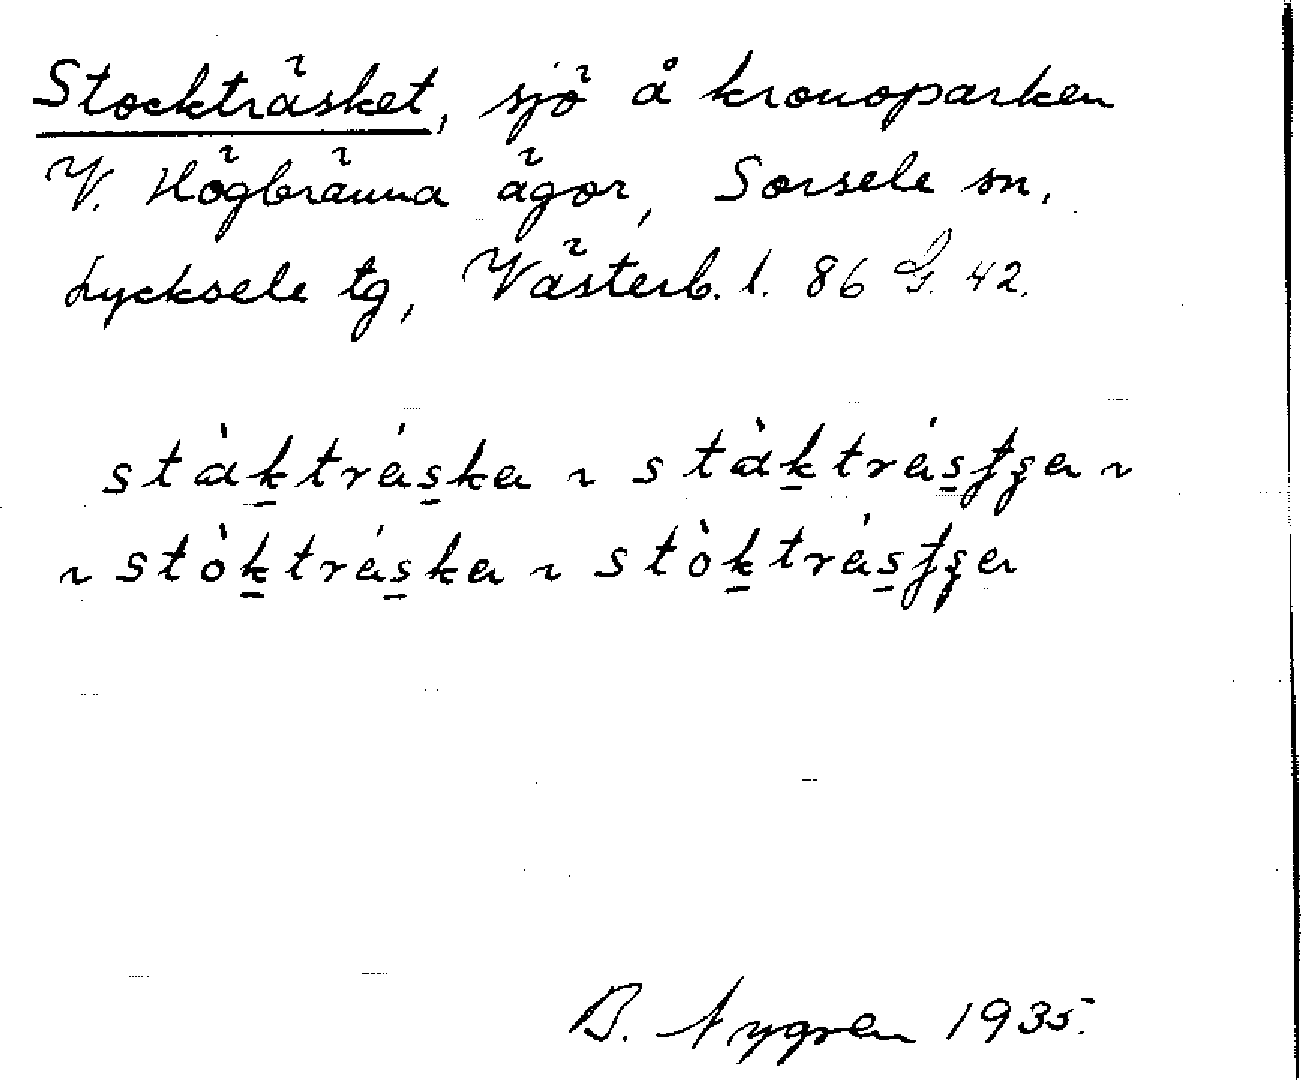 Stockträsket, sjö å kronoparken
V. Högbränna ägor, Sorsele sn,
Lycksele tg, Västerb. l. 86 G. 42.
stàk̲trás̲ka ~ stàk̲trás̲ʄʂa ~
~ stòk̲trás̲ka ~ stòk̲trás̲ʄʂa
B. Nygren 1935.